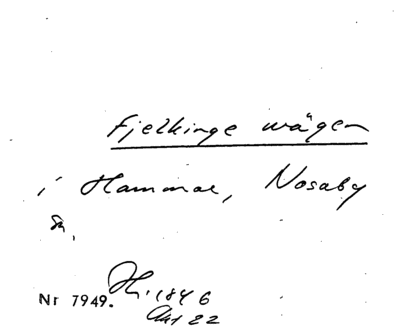 Fjelkinge wägen
i Hammar, Nosaby
Sn.
Nr 7949. Hi. 1846
Akt 22